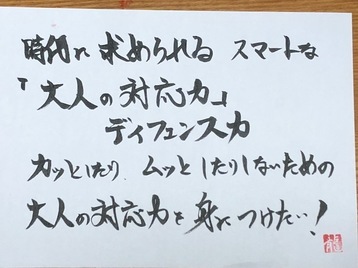 時代に求められる スマートな
「大人の対応力」
ディフェンス力
カッとしたり ムッとしたりしないための
大人の対応力を身につけたい!